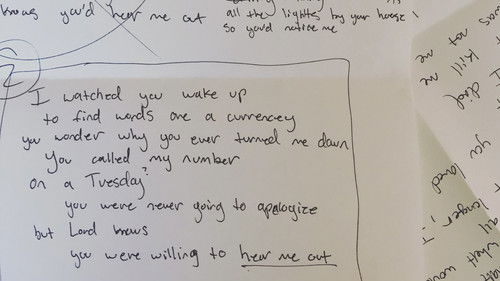 knows you'd hear me out
all the lights by your house
so you'd notice me
I watched you wake up
to find words are a currencey
you wonder why you ever turned me down
You called my number
on a Tuesday?
you were never going to apologize
but Lord knows
you were willing to hear me out
not
kill me
I died
you
loved
longer, I
all
what
would